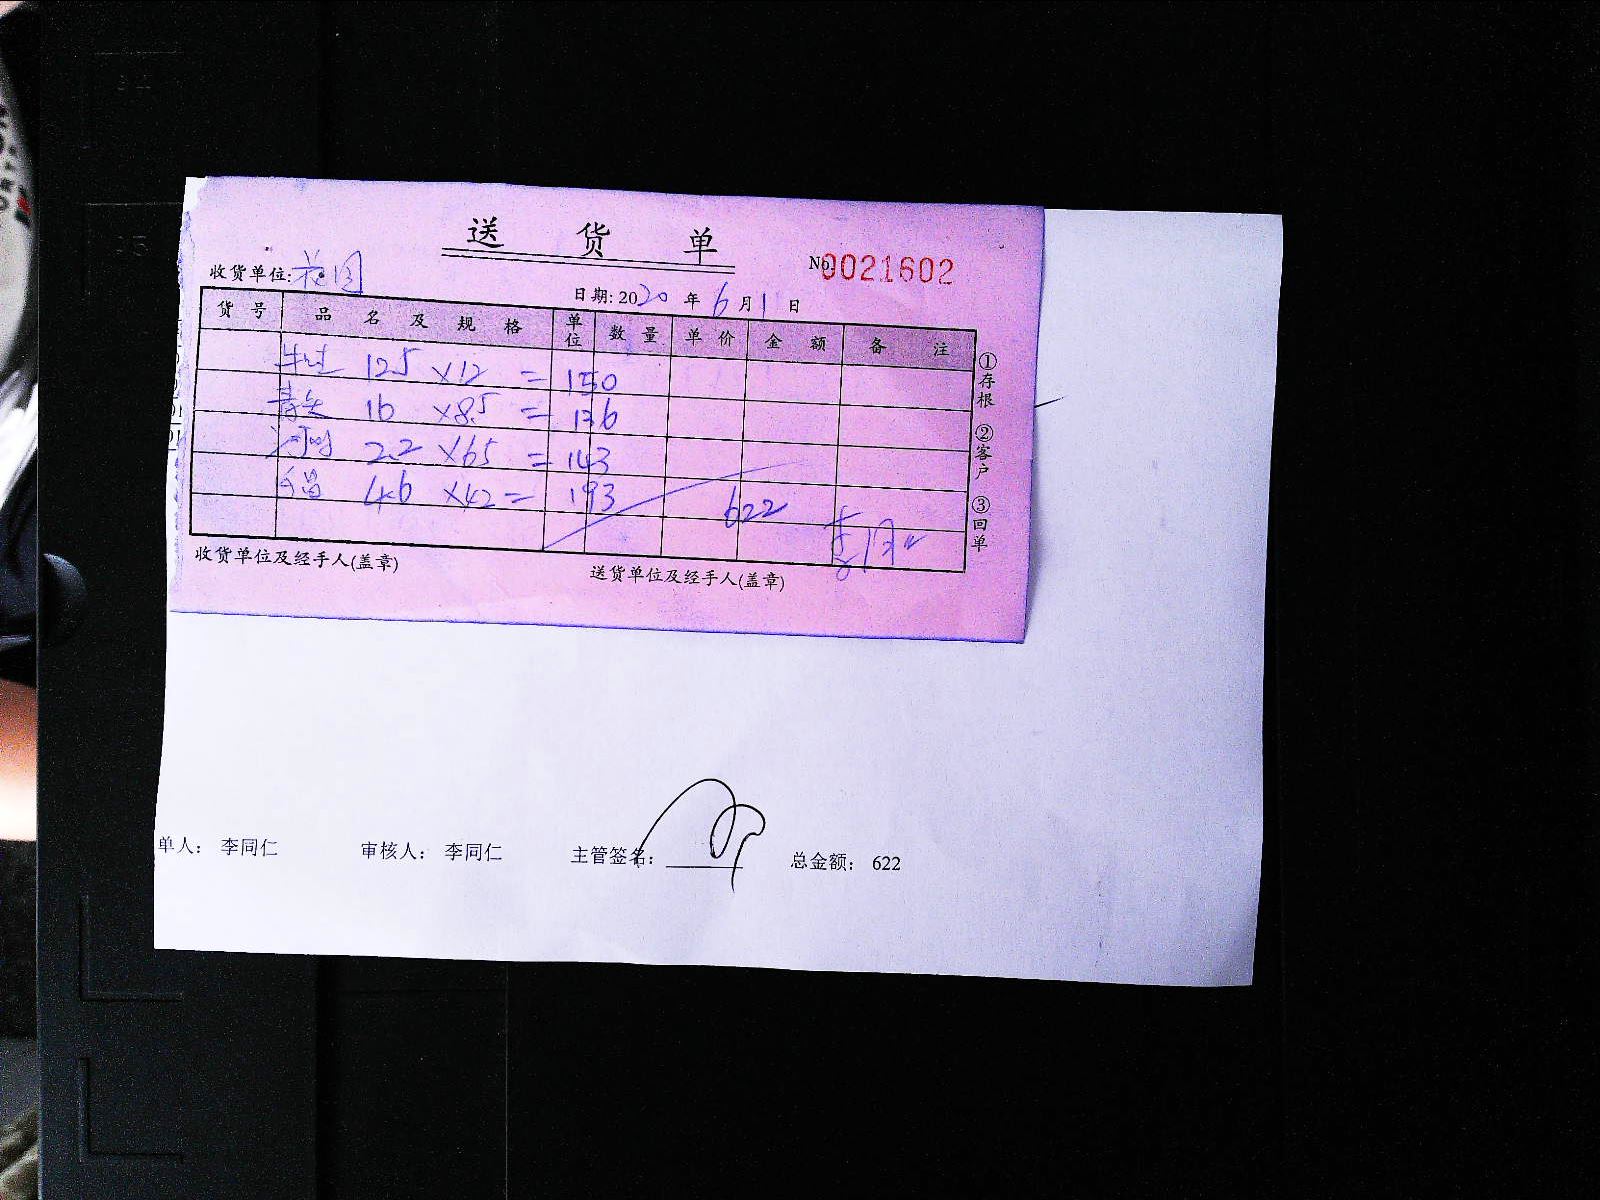 送 货 单
收货单位: 花园
No 0021602
日期: 2020 年 6 月 1 日
货 号 品 名 及 规 格 单位 数 量 单 价 金 额 备 注
牛蛙 125 ×12 = 150
16 ×8.5 = 136
河虾 2.2 ×65 = 143
4.6 ×42 = 193
622
①存根 ②客户 ③回单
收货单位及经手人(盖章)
送货单位及经手人(盖章)
单人： 李同仁 审核人： 李同仁 主管签名： 总金额： 622